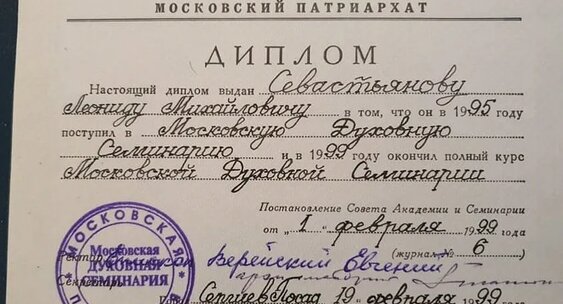 МОСКОВСКИЙ ПАТРИАРХАТ
ДИПЛОМ
Настоящий диплом выдан Севастьянову
Леониду Михайловичу в том, что он в 1995 году
поступил в Московскую Духовную
Семинарию и в 1999 году окончил полный курс
Московской Духовной Семинарии
Постановление Совета Академии и Семинарии
от „1" февраля 1999 года
(журнал № 6)
Ректор Епископ Верейский Евгений
Секретарь
Сергиев Посад 19 февраля 1999
МОСКОВСКАЯ
Московская
ДУХОВНАЯ
СЕМИНАРИЯ